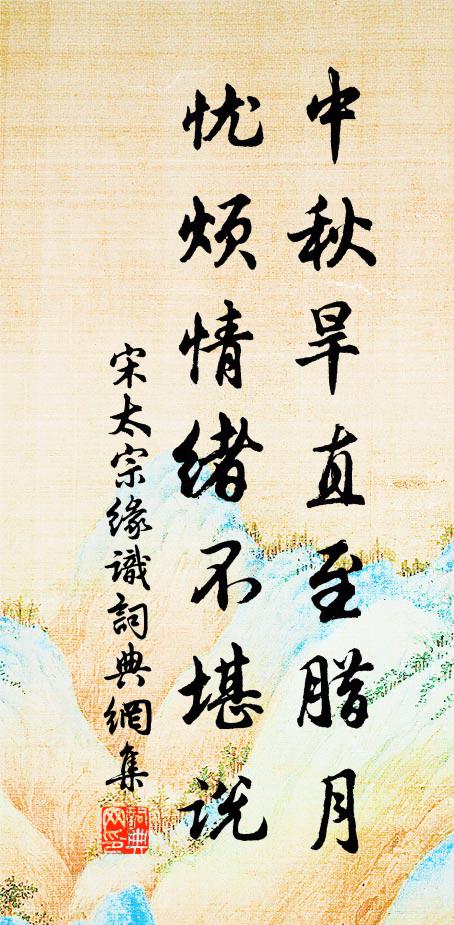 中秋旱直至腊月
忧烦情绪不堪说
宋太宗緣識詞典網集